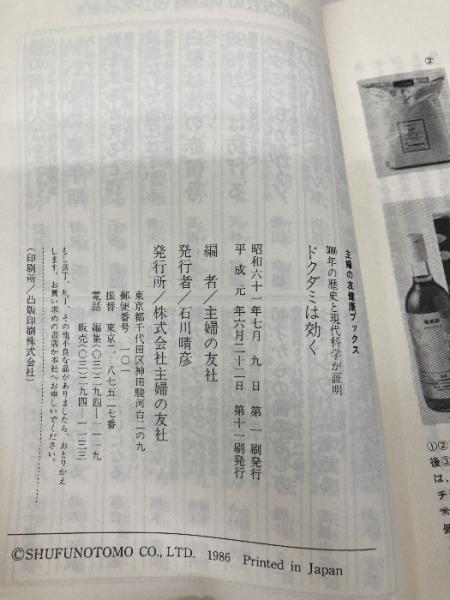 主婦の友健康ブックス
3000年の歴史と現代科学が証明
ドクダミは効く
昭和六十一年七月 九 日 第 一 刷発行
平 成 元 年六月二十二日 第十一刷発行
編 者/主婦の友社
発行者/石川晴彦
発行所/株式会社主婦の友社
東京都千代田区神田駿河台二の九
郵便番号 一〇一
振替 東京二―八七五二七番
電話 編集(〇三)二九四―一一一九
販売(〇三)二九四―一一三三
もし落丁、乱丁、その他不良な品がありましたら、おとりかえ
します。お買い求めの書店か本社へお申しいでください。
(印刷所/凸版印刷株式会社)
©SHUFUNOTOMO CO., LTD. 1986 Printed in Japan
②
①②
後③
は、
チ